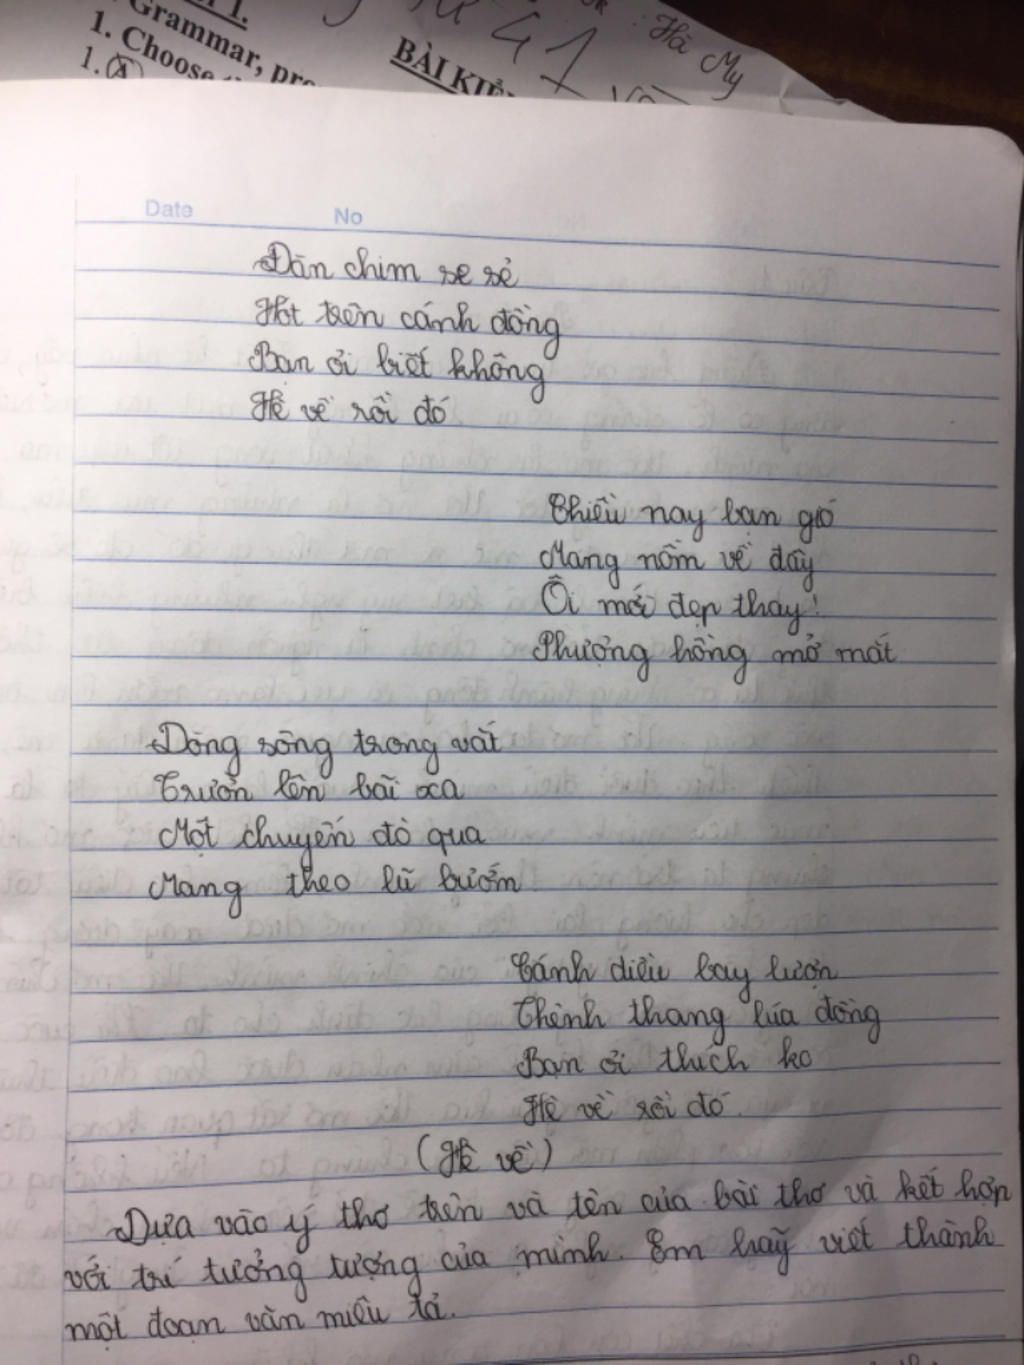 1.
Grammar, pro
1. Choose
1. A
BÀI KIỂ
41
: Hà My
Date No
Đàn chim se sẻ
Hót trên cánh đồng
Bạn ơi biết không
Hè về rồi đó
Chiều nay bạn gió
Mang nồm về đây
Ôi mới đẹp thay!
Phượng hồng mở mắt
Dòng sông trong vắt
Trườn lên bãi xa
Một chuyến đò qua
Mang theo lũ bướm
Cánh diều bay lượn
Thênh thang lúa đồng
Bạn ơi thích ko
Hè về rồi đó.
(Hè về)
Dựa vào ý thơ trên và tên của bài thơ và kết hợp
với trí tưởng tượng của mình. Em hãy viết thành
một đoạn văn miêu tả.